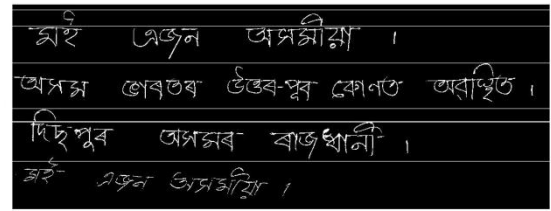 মই এজন অসমীয়া ।
অসম ভাৰতৰ উত্তৰ-পূব কোনত অৱস্থিত ।
দিছপুৰ অসমৰ ৰাজধানী ।
মই এজন অসমীয়া ।